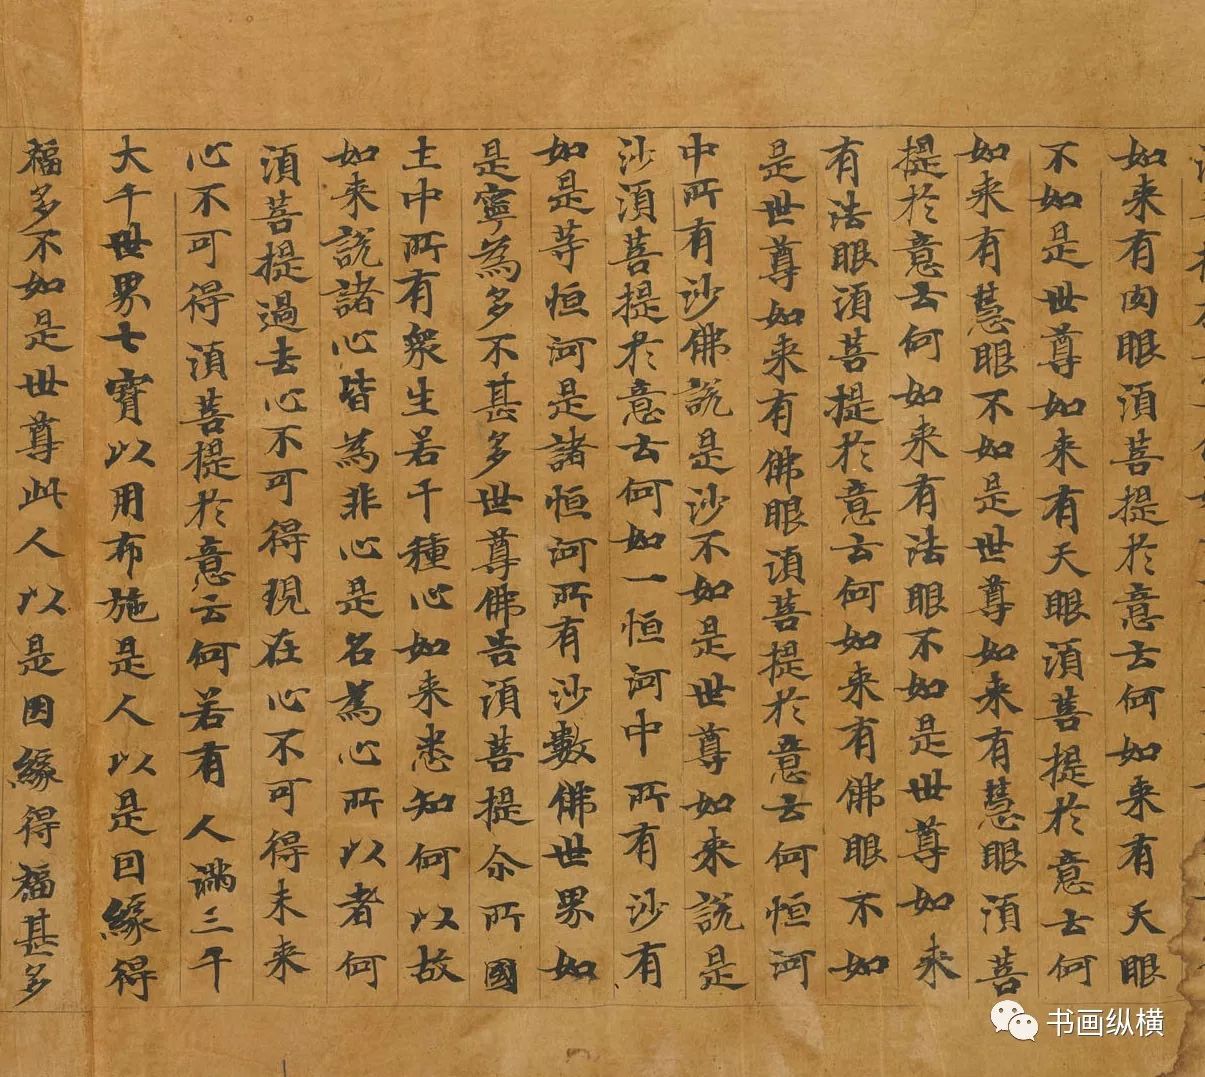 如来有肉眼須菩提於意云何如来有天眼
不如是世尊如来有天眼須菩提於意云何
如来有慧眼不如是世尊如来有慧眼須菩
提於意云何如来有法眼不如是世尊如来
有法眼須菩提於意云何如来有佛眼不如
是世尊如来有佛眼須菩提於意云何恒河
中所有沙佛說是沙不如是世尊如来說是
沙須菩提於意云何如一恒河中所有沙有
如是等恒河是諸恒河所有沙數佛世界如
是寧為多不甚多世尊佛告須菩提尒所國
土中所有衆生若干種心如来悉知何以故
如来說諸心皆為非心是名為心所以者何
須菩提過去心不可得現在心不可得未来
心不可得須菩提於意云何若有人滿三千
大千世界七寶以用布施是人以是因緣得
福多不如是世尊此人以是因緣得福甚多
书画纵横